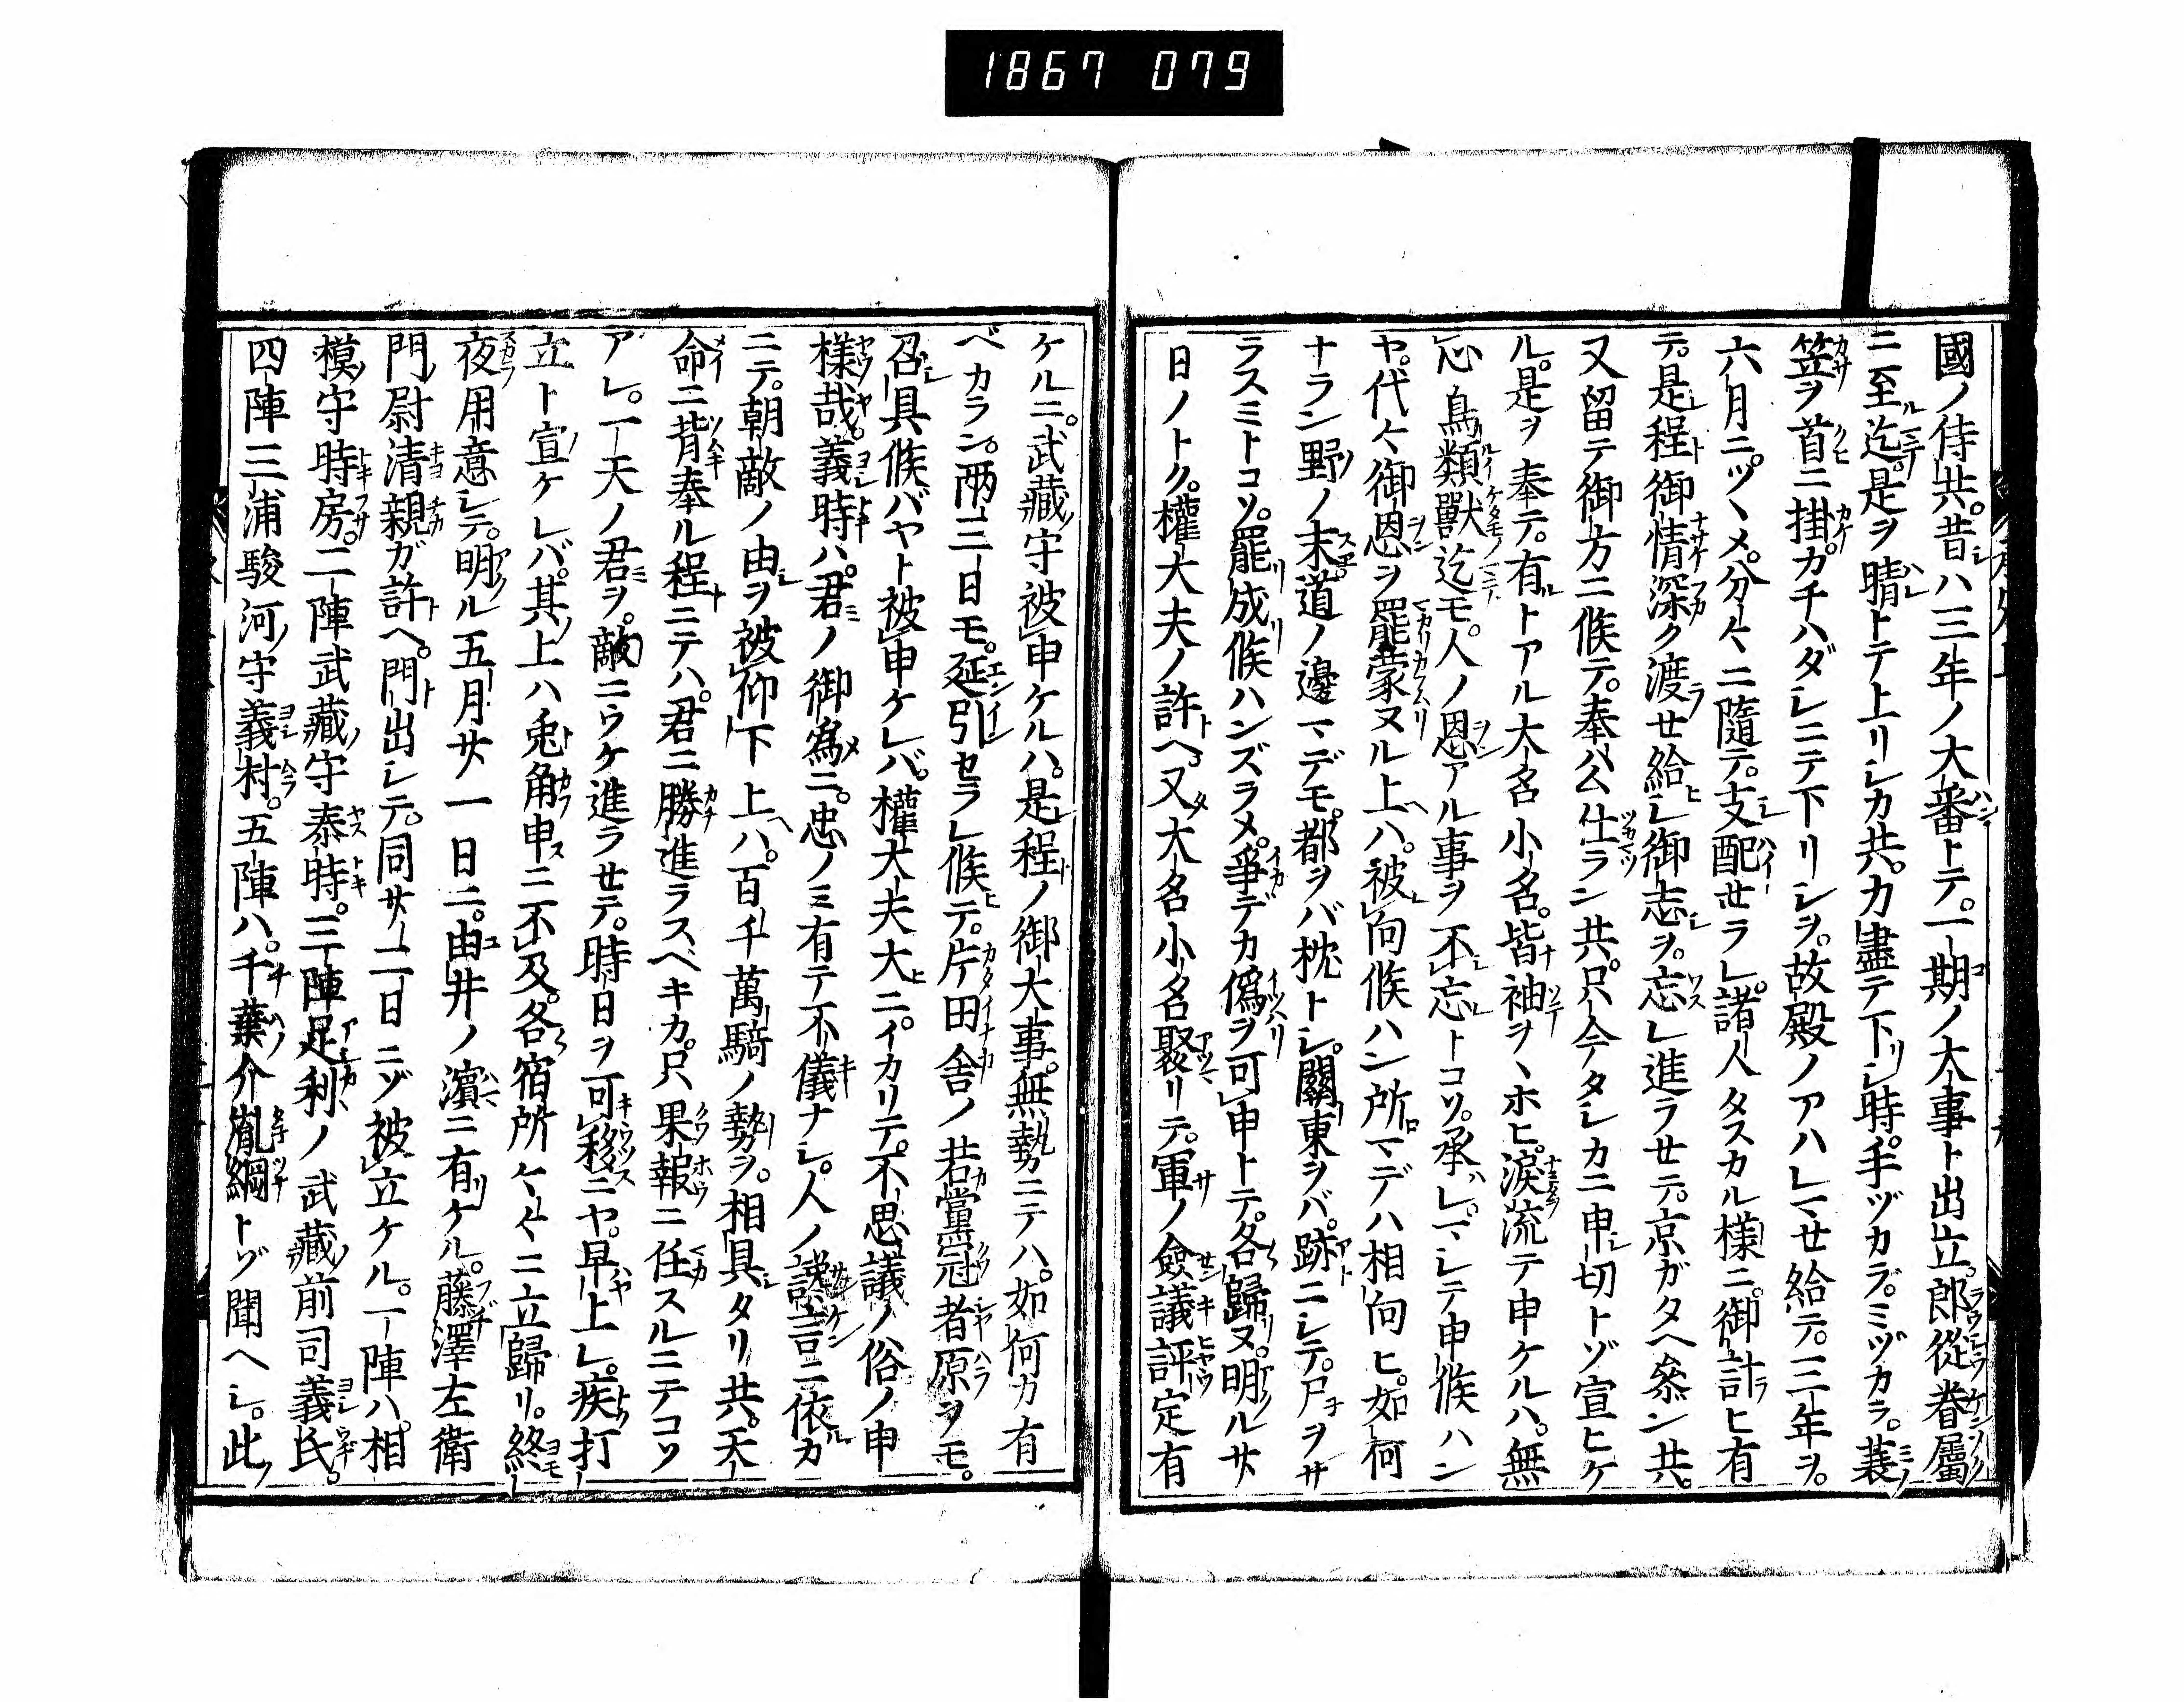 1867 079
國ノ侍共。昔ハ三年ノ大番トテ。一期ノ大事ト出立。郎從眷屬
ニ至迄。是ヲ晴トテ上リシカ共。力盡テ下シ時。手ヅカラ。ミヅカラ。蓑
笠ヲ首ニ掛。カチハダシニテ下リシヲ。故殿ノアハレマセ給テ。三年ヲ。
六月ニ。ツヽメ。分々ニ隨テ。支配セラレ。諸人タスカル樣ニ。御計ヒ有
テ。是程御情深ク渡セ給シ御志ヲ。忘レ進ラセテ。京ガタヘ參ン共。
又留テ御方ニ候テ。奉公仕ラン共。只今タシカニ申切トゾ宣ヒケ
ル。是ヲ奉テ。有トアル大名小名。皆袖ヲヽホヒ。淚流テ申ケルハ。無
心鳥類獸迄モ。人ノ恩アル事ヲ不忘トコソ。承レ。マシテ申候ハン
ヤ。代々御恩ヲ罷蒙ヌル上ハ。被向候ハン所マデハ相向ヒ。如何
ナラン野ノ末。道ノ邊マデモ。都ヲバ枕トシ。關東ヲバ。跡ニシテ。尸ヲサ
ラスミトコソ。罷成候ハンズラメ。爭デカ僞ヲ可申トテ。各歸ヌ。明ル廿
日ノトク。權大夫ノ許ヘ。又大名小名聚リテ。軍ノ僉議評定有
ケルニ。武藏守被申ケルハ。是程ノ御大事。無勢ニテハ。如何カ有
ベカラン。兩三日モ。延引セラレ候テ。片田舍ノ若黨冠者原ヲモ。
召具候バヤト被申ケレバ。權大夫大ニ。イカリテ。不思議ノ俗ノ申
樣哉。義時ハ。君ノ御爲ニ。忠ノミ有テ不儀ナシ。人ノ讒言ニ依カ
ニテ。朝敵ノ由ヲ被仰下上ハ。百千萬騎ノ勢ヲ。相具タリ共。天
命ニ背奉ル程ニテハ。君ニ勝進ラスベキカ。只果報ニ任スルニテコソ
アレ。一天ノ君ヲ。敵ニウケ進ラセテ。時日ヲ可移ニヤ。早上レ。疾打
立ト宣ケレバ。其上ハ兎角申ニ不及。各宿所々々ニ立歸リ。終
夜用意シテ。明ル五月廿一日ニ。由井ノ濱ニ有ケル。藤澤左衛
門尉清親ガ許ヘ。門出シテ。同廿二日ニゾ被立ケル。一陣ハ。相
模守時房。二陣武藏守泰時。三陣足利ノ武藏前司義氏。
四陣三浦駿河守義村。五陣ハ。千葉介胤綱トゾ聞ヘシ。此